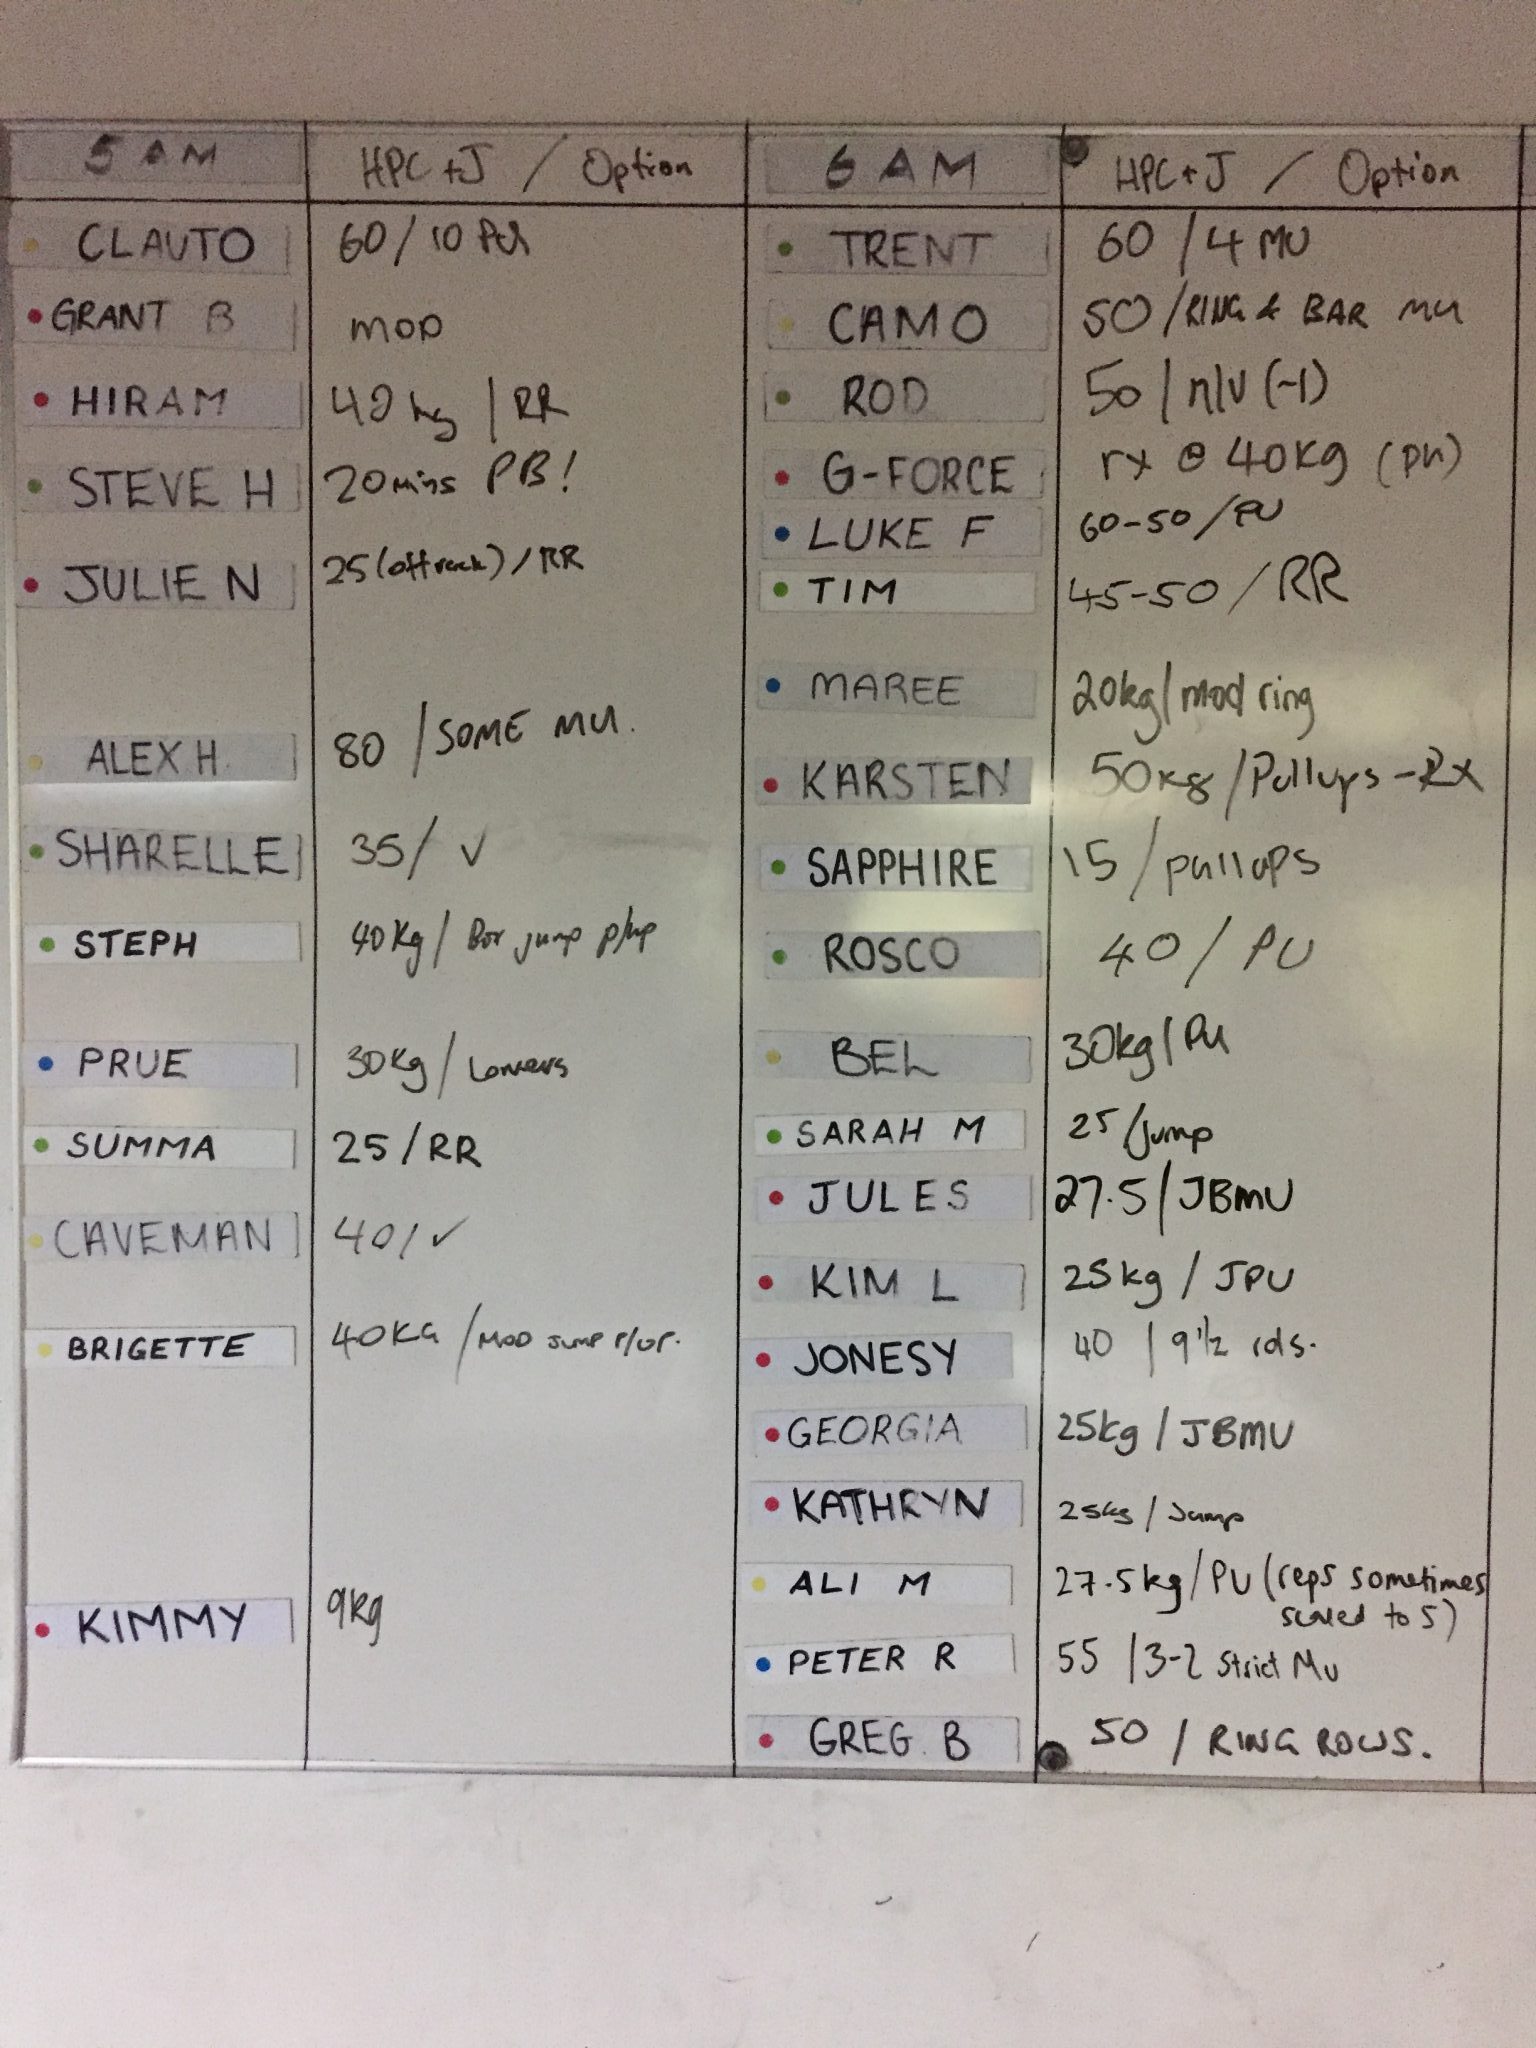 5 AM HPC + J / Option
CLAUTO 60 / 10
GRANT B MOD
HIRAM 40 kg / RR
STEVE H 20 mins PB!
JULIE N 25 (off rack) / RR
ALEX H. 80 / SOME MU.
SHARELLE 35 / ✓
STEPH 40Kg / jump
PRUE 30Kg /
SUMMA 25 / RR
CAVEMAN 40 / ✓
BRIGETTE 40KG / MOD JUMP P/UP.
KIMMY 9kg
6 AM HPC + J / Option
TRENT 60 / 4 MU
CAMO 50 / RING & BAR MU
ROD 50 / (-1)
G-FORCE rx @ 40Kg (pu)
LUKE F 60-50 / PU
TIM 45-50 / RR
MAREE 20kg / mod ring
KARSTEN 50kg / Pullups - Rx
SAPPHIRE 15 / pullups
ROSCO 40 / PU
BEL 30kg / PU
SARAH M 25 / jump
JULES 27.5 / JBMU
KIM L 25kg / JPU
JONESY 40 / 9 1/2 rds.
GEORGIA 25kg / JBMU
KATHRYN 25kg / Jump
ALI M 27.5kg / PU (reps sometimes
scaled to 5)
PETER R 55 / 3-2 Strict MU
GREG B 50 / RING ROWS.